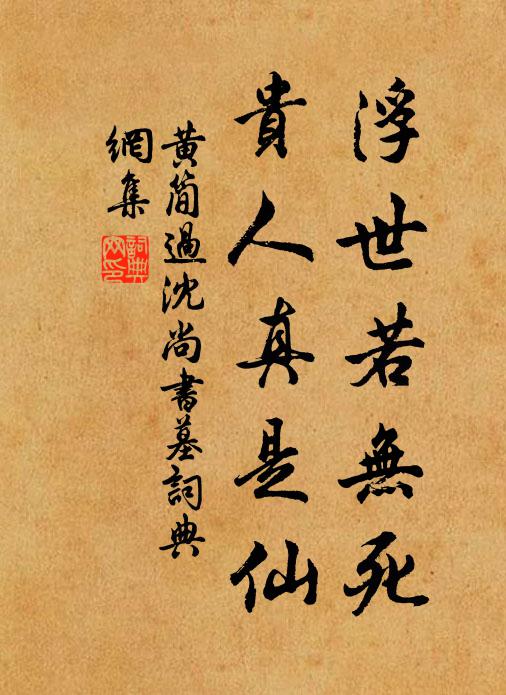 浮世若無死
貴人真是仙
黄简過沈尚書墓詞典
網集
詞典網印